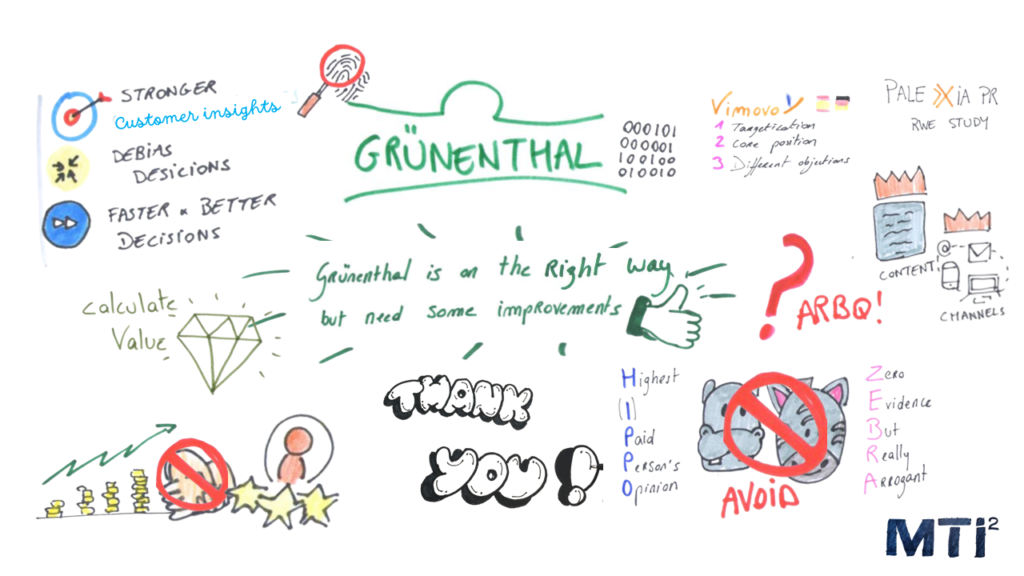 STRONGER
Customer insights
DEBIAS
DESICIONS
FASTER & BETTER
DECISIONS
GRÜNENTHAL
000101
000001
100100
010010
Vimovo
1 Targetication
2 Core position
3 Different objections
PALEXIA PR
RWE STUDY
CONTENT
@
CHANNELS
Grünenthal is on the Right way
but need some improvements
? ARBQ!
calculate
Value
THANK
YOU !
Highest
(I)
Paid
Person's
Opinion
AVOID
Zero
Evidence
But
Really
Arrogant
MTi²